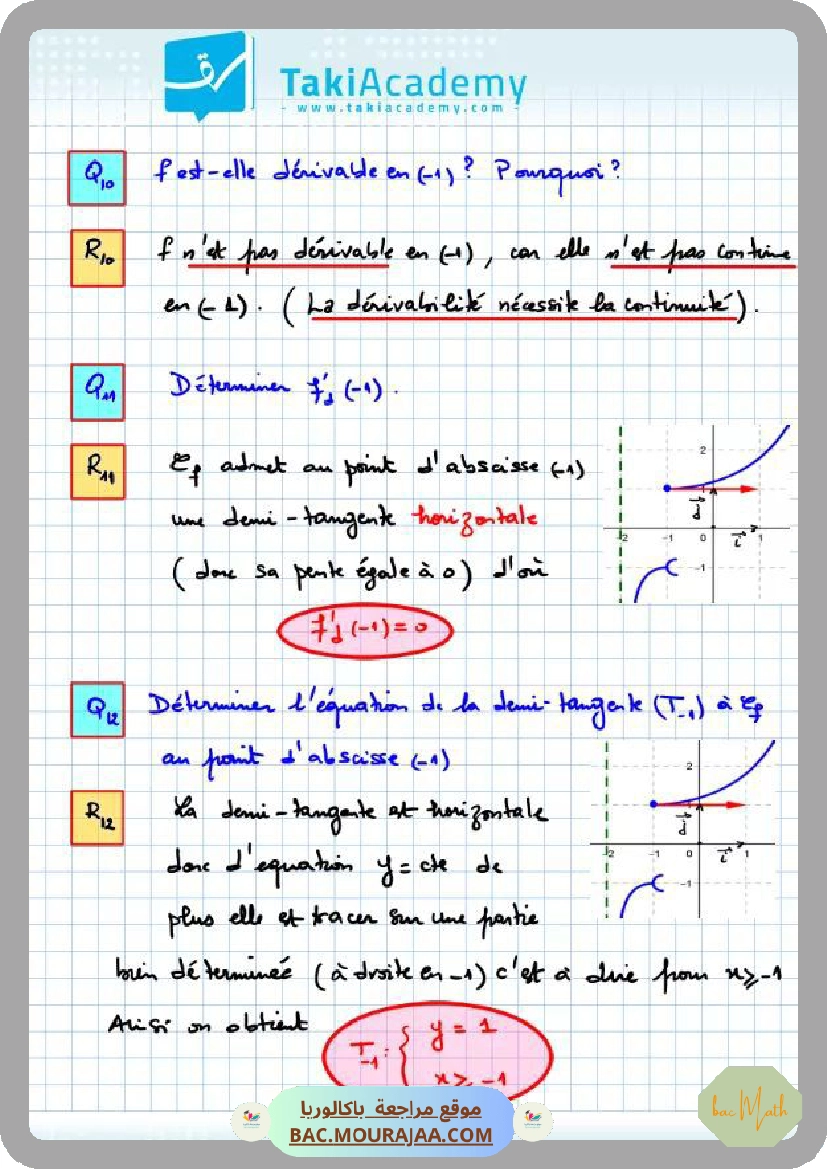 TakiAcademy
- www.takiacademy.com -
Q10 f est-elle dérivable en (-1)? Pourquoi?
R10 f n'est pas dérivable en (-1), car elle n'est pas continue
en (-1). (La dérivabilité nécessite la continuité).
Q11 Déterminer f'd (-1).
R11 Cf admet au point d'abscisse (-1)
une demi-tangente horizontale
(donc sa pente égale à 0) d'où
f'd (-1) = 0
2
-2 -1 0 1
-1
j
i
Q12 Déterminer l'équation de la demi-tangente (T-1) à Cf
au point d'abscisse (-1)
R12 La demi-tangente est horizontale
donc d'equation y = cte de
plus elle est tracer sur une partie
bien déterminée (à droite en -1) c'est à dire pour x ≥ -1
Ainsi on obtient
T-1 : { y = 1
x ≥ -1
2
-2 -1 0 1
-1
j
i
موقع مراجعة باكالوريا
BAC.MOURAJAA.COM
bac Math